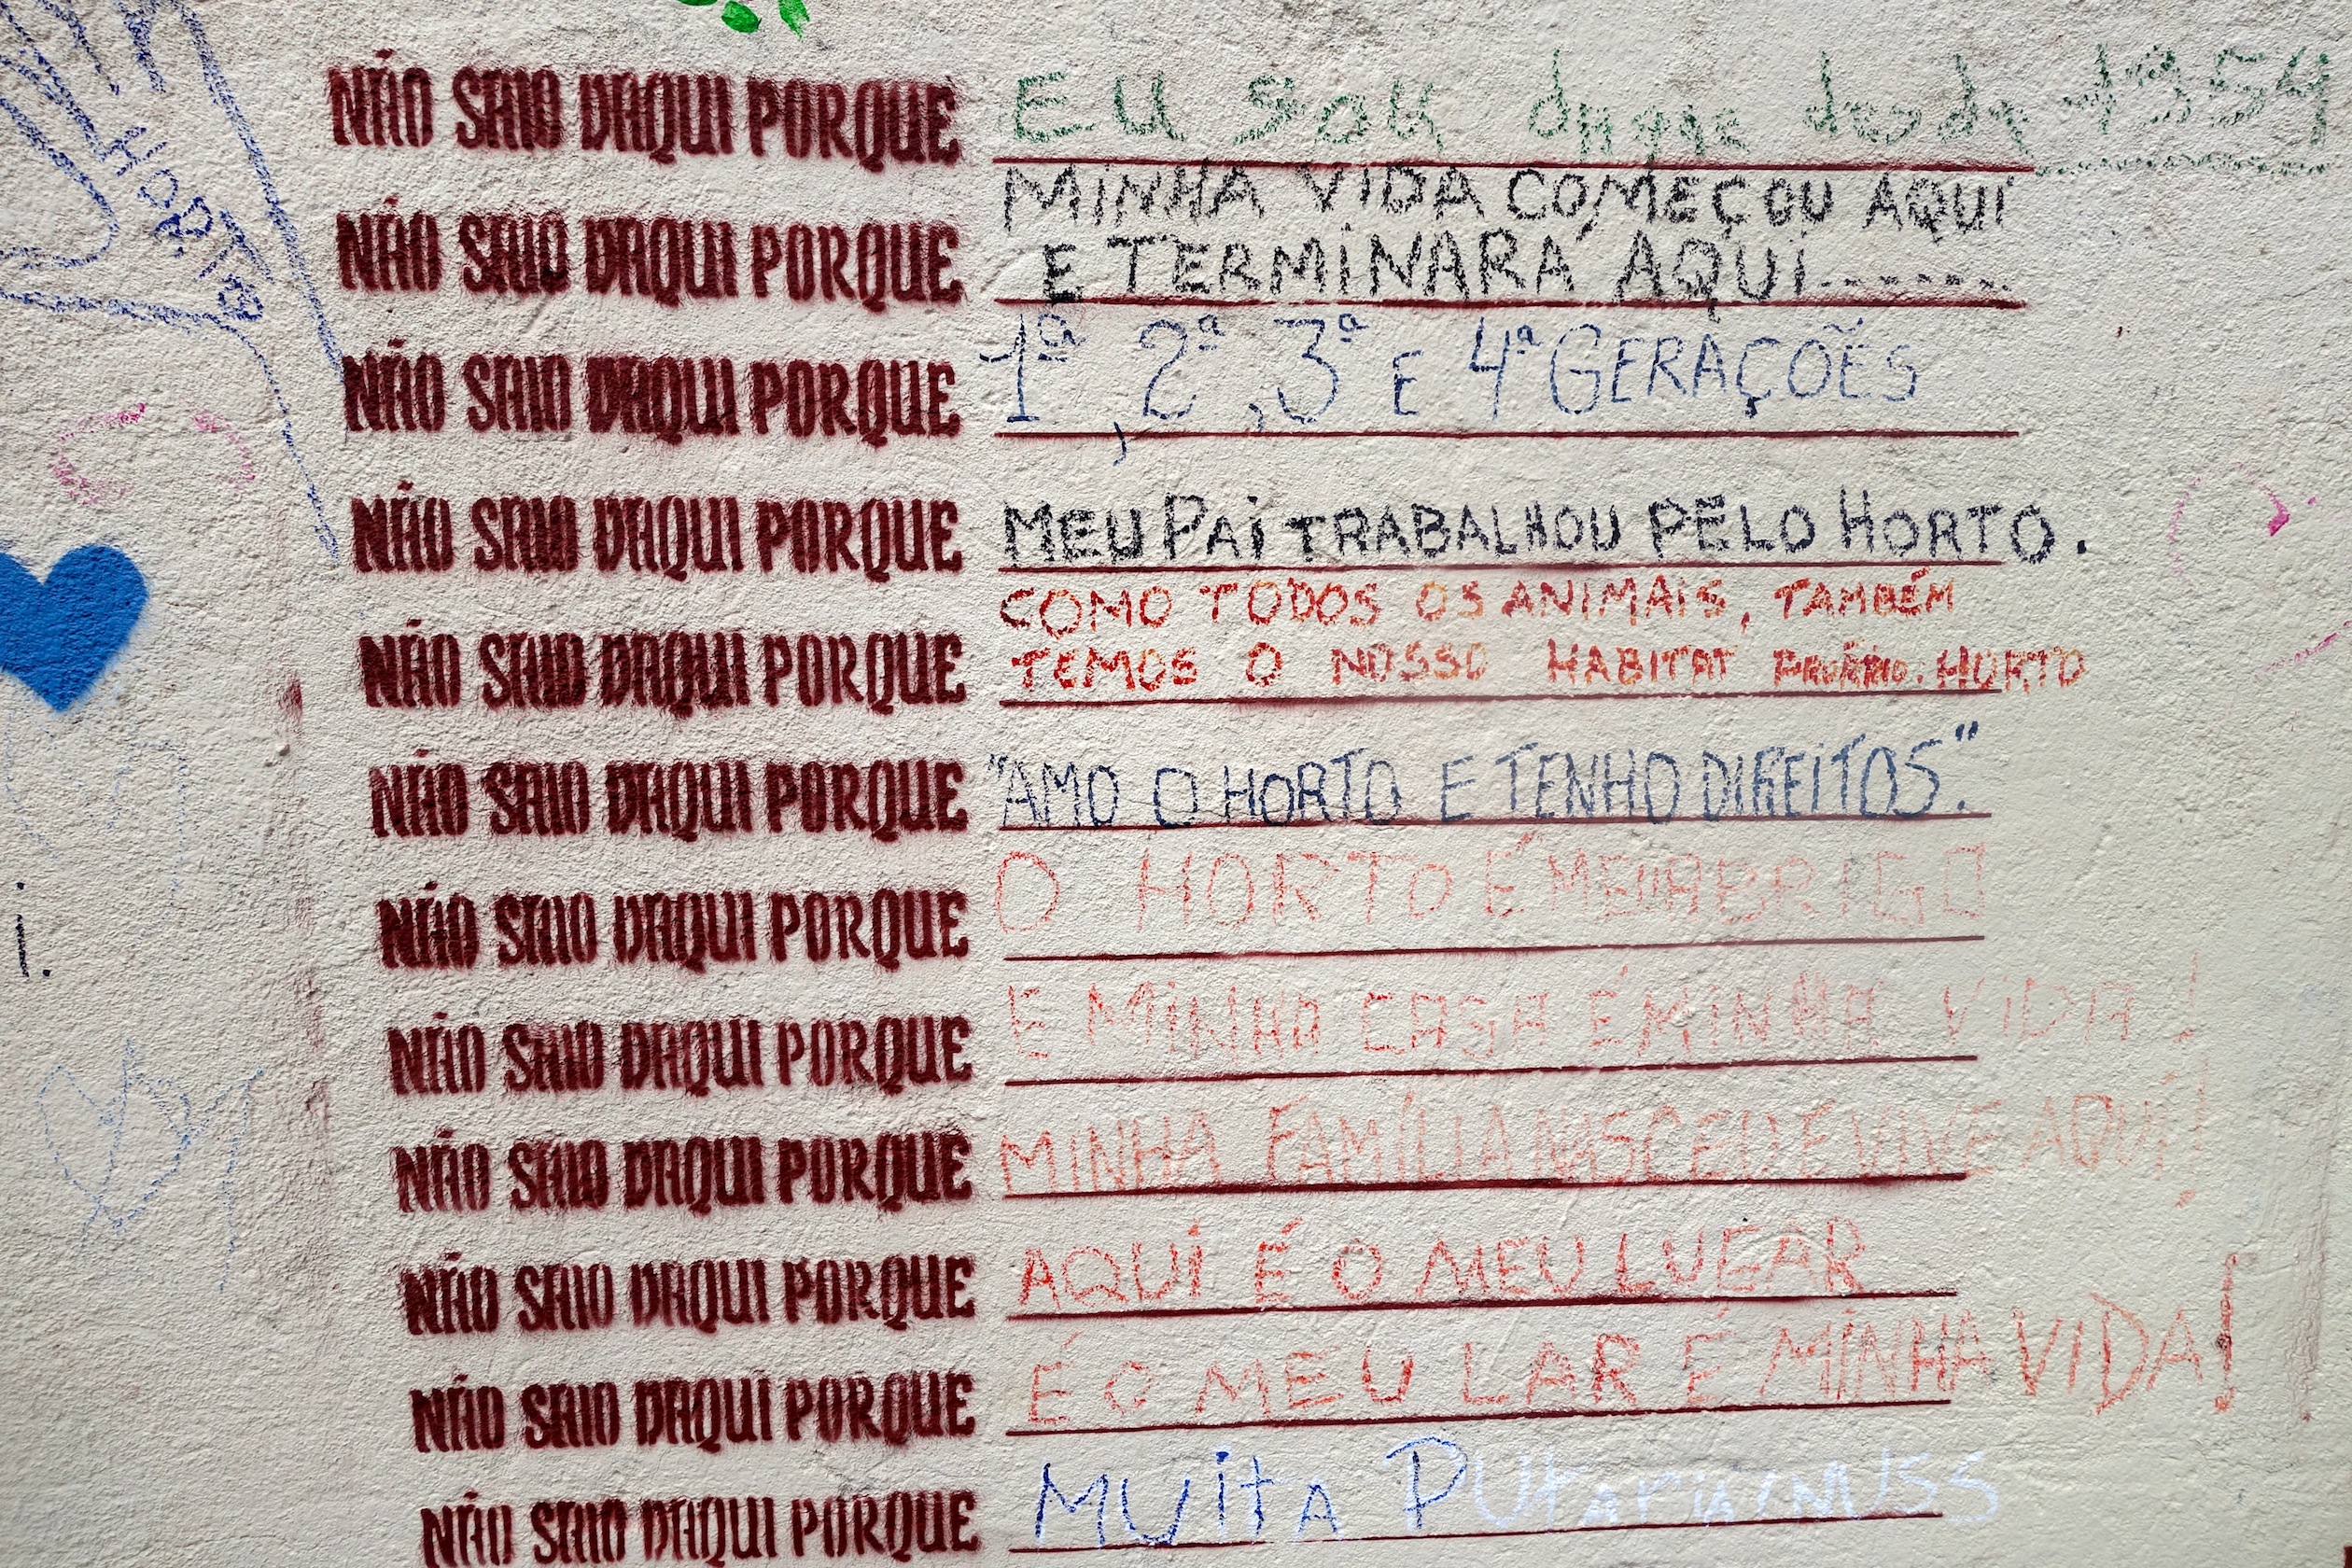 NÃO SAIO DAQUI PORQUE EU SOU daqui desde 1954
NÃO SAIO DAQUI PORQUE MINHA VIDA COMEÇOU AQUI
E TERMINARÁ AQUI.......
NÃO SAIO DAQUI PORQUE 1ª, 2ª, 3ª E 4ª GERAÇÕES
NÃO SAIO DAQUI PORQUE MEU PAI TRABALHOU PELO HORTO.
NÃO SAIO DAQUI PORQUE COMO TODOS OS ANIMAIS, TAMBÉM
TEMOS O NOSSO HABITAT HORTO
NÃO SAIO DAQUI PORQUE "AMO O HORTO E TENHO DIREITOS."
NÃO SAIO DAQUI PORQUE O HORTO É MEU ABRIGO
NÃO SAIO DAQUI PORQUE E MINHA CASA É MINHA VIDA!
NÃO SAIO DAQUI PORQUE MINHA FAMÍLIA NASCEU E VIVE AQUI!
NÃO SAIO DAQUI PORQUE AQUI É O MEU LUGAR
NÃO SAIO DAQUI PORQUE É O MEU LAR É MINHA VIDA!
NÃO SAIO DAQUI PORQUE MUITA